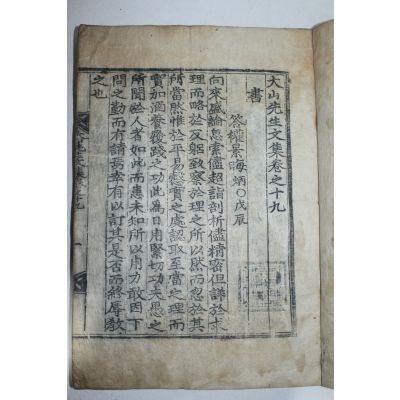 大山先生文集卷之十九
書
答權景晦炳○戊辰
向來盛論思索儘超詣剖析儘精密但詳於求
理而略於反躬致察於理之所以然而忽於其
所當然惟於平易慤實之處認取至當之理而
實加涵養踐之功此爲日用緊切功夫愚之
所聞於人者如此而患未知所以用力敢因下
問之勤而有請焉幸有以訂其是否而終辱敎
之也